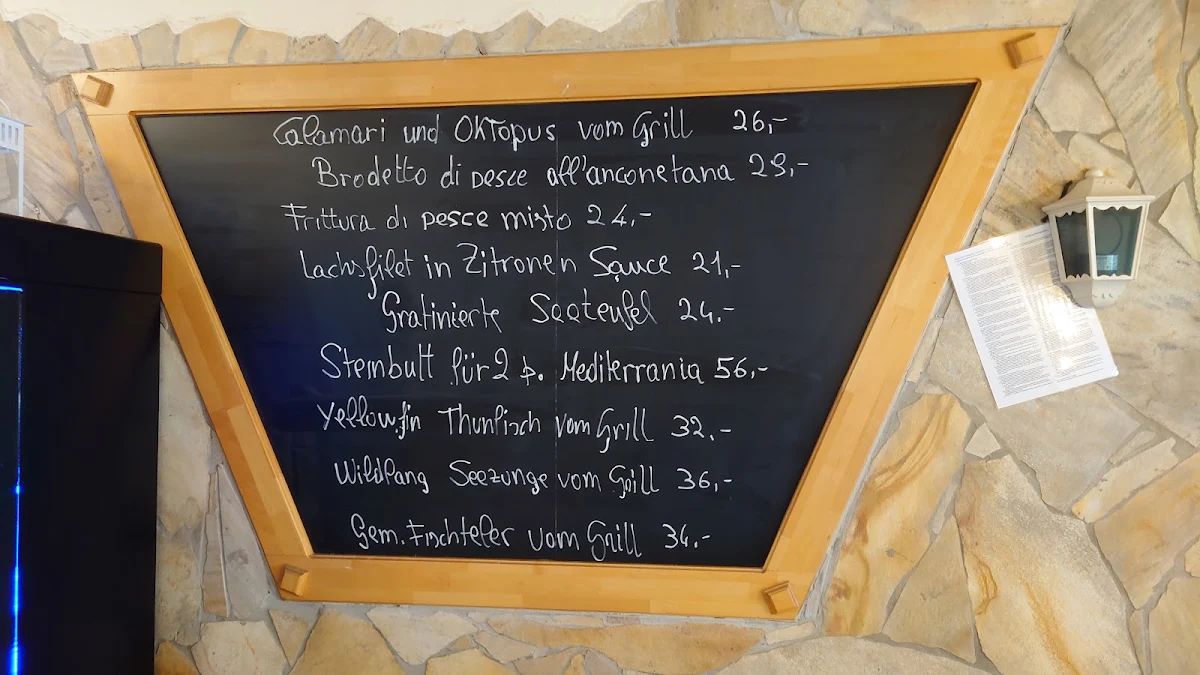 Calamari und Oktopus vom Grill 26,-
Brodetto di pesce all'anconetana 29,-
Frittura di pesce misto 24,-
Lachsfilet in Zitronen Sauce 21,-
Gratinierte Seeteufel 24,-
Steinbutt für 2 p. Mediterrania 56,-
Yellowfin Thunfisch vom Grill 32,-
Wildfang Seezunge vom Grill 36,-
Gem. Fischteler vom Grill 34,-